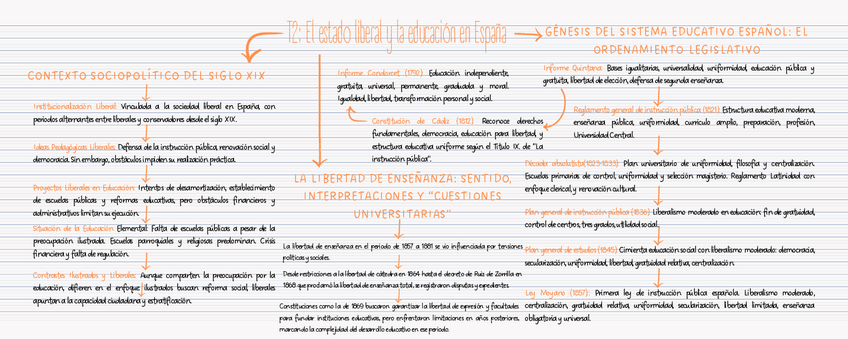 T2: El estado liberal y la educación en España
CONTEXTO SOCIOPOLÍTICO DEL SIGLO XIX
Institucionalización Liberal: Vinculada a la sociedad liberal en España, con
periodos alternantes entre liberales y conservadores desde el siglo XIX.
Ideas Pedagógicas Liberales: Defensa de la instrucción pública, renovación social y
democracia. Sin embargo, obstáculos impiden su realización práctica.
Proyectos Liberales en Educación: Intentos de desamortización, establecimiento
de escuelas públicas y reformas educativas, pero obstáculos financieros y
administrativos limitan su ejecución.
Situación de la Educación Elemental: Falta de escuelas públicas a pesar de la
preocupación ilustrada. Escuelas parroquiales y religiosas predominan. Crisis
financiera y falta de regulación.
Contrastes Ilustrados y Liberales: Aunque comparten la preocupación por la
educación, difieren en el enfoque; ilustrados buscan reforma social, liberales
apuntan a la capacidad ciudadana y estratificación.
Informe Condorcet (1792): Educación independiente,
gratuita, universal, permanente, graduada y moral.
Igualdad, libertad, transformación personal y social.
Constitución de Cádiz (1812): Reconoce derechos
fundamentales, democracia, educación para libertad, y
estructura educativa uniforme según el Título IX. de "La
instrucción pública".
LA LIBERTAD DE ENSEÑANZA: SENTIDO,
INTERPRETACIONES Y "CUESTIONES
UNIVERSITARIAS"
La libertad de enseñanza en el periodo de 1857 a 1881 se vio influenciada por tensiones
políticas y sociales.
Desde restricciones a la libertad de cátedra en 1864 hasta el decreto de Ruiz de Zorrilla en
1868 que proclamó la libertad de enseñanza total, se registraron disputas y expedientes.
Constituciones como la de 1869 buscaron garantizar la libertad de expresión y facultades
para fundar instituciones educativas, pero enfrentaron limitaciones en años posteriores,
marcando la complejidad del desarrollo educativo en ese período.
GÉNESIS DEL SISTEMA EDUCATIVO ESPAÑOL: EL
ORDENAMIENTO LEGISLATIVO
Informe Quintana: Bases igualitarias, universalidad, uniformidad, educación pública y
gratuita, libertad de elección, defensa de segunda enseñanza.
Reglamento general de instrucción pública (1821): Estructura educativa moderna,
enseñanza pública, uniformidad, currículo amplio, preparación, profesión,
Universidad Central.
Década absolutista(1823-1833): Plan universitario de uniformidad, filosofía y centralización.
Escuelas primarias de control, uniformidad y selección magisterio. Reglamento Latinidad con
enfoque clerical y renovación cultural.
Plan general de instrucción pública (1836): Liberalismo moderado en educación: fin de gratuidad,
control de centros, tres grados, utilidad social.
Plan general de estudios (1845): Cimienta educación social con liberalismo moderado: democracia,
secularización, uniformidad, libertad, gratuidad relativa, centralización.
Ley Moyano (1857): Primera ley de instrucción pública española. Liberalismo moderado,
centralización, gratuidad relativa, uniformidad, secularización, libertad limitada, enseñanza
obligatoria y universal.